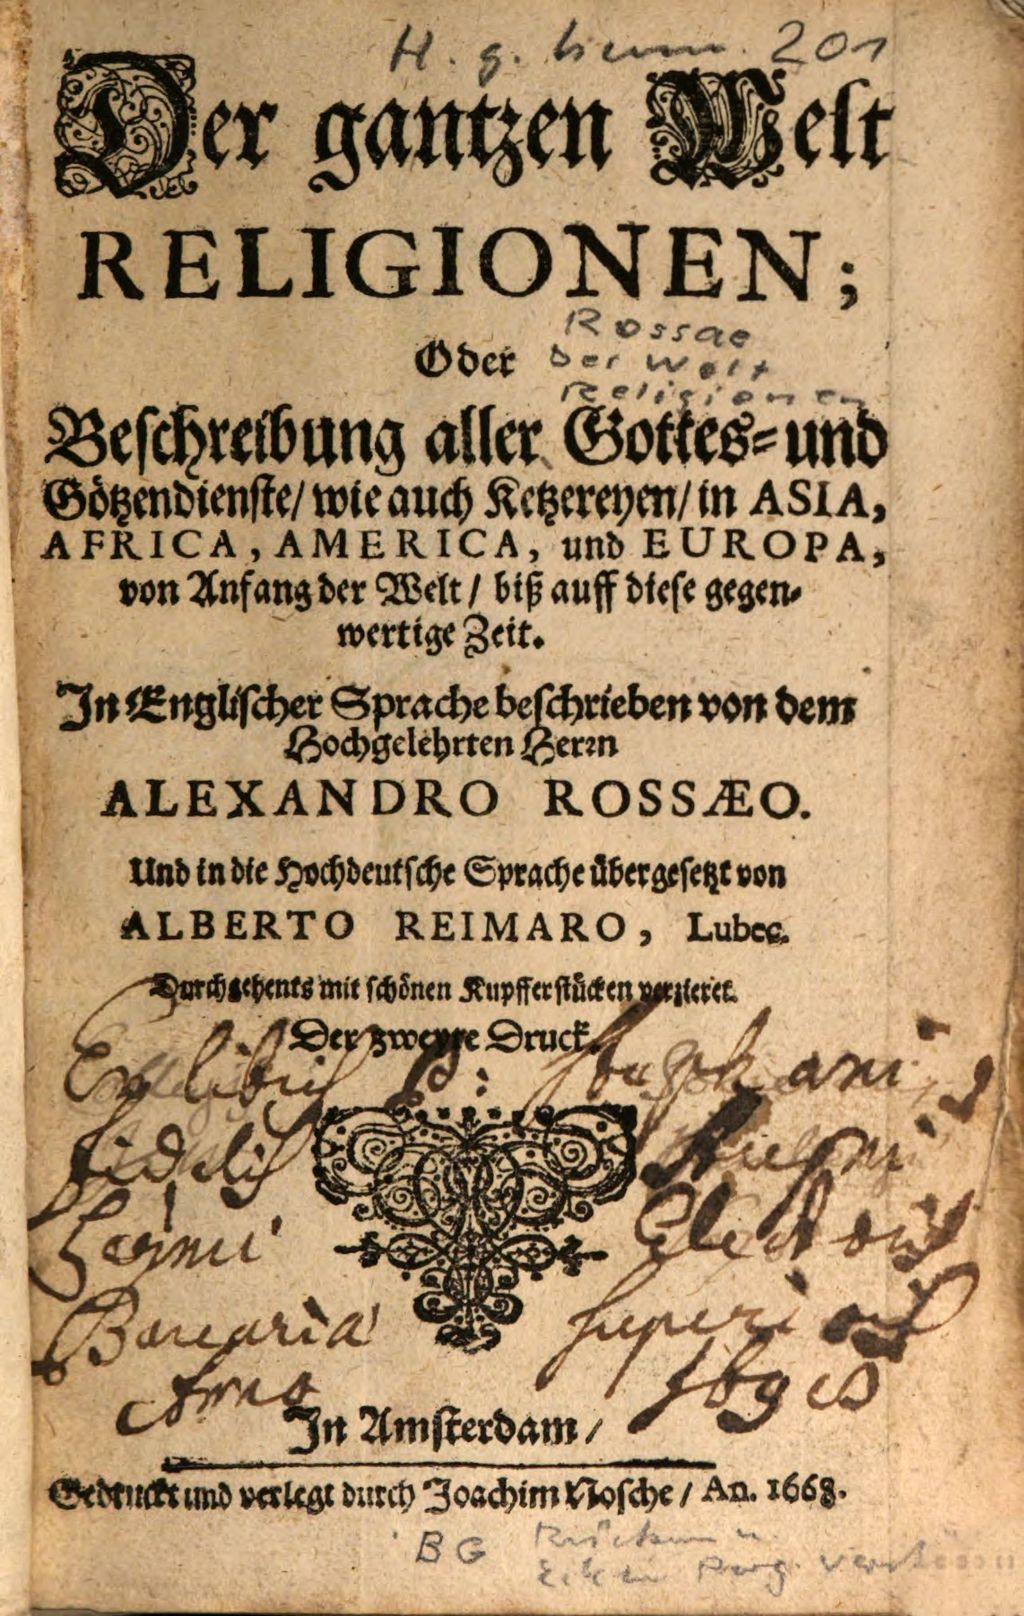 H. g. hum. 201
Der gantzen Welt
RELIGIONEN;
Rossae
Oder
der Welt
Religionen
Beschreibung aller Gottes- und
Götzendienste/ wie auch Ketzereyen/ in ASIA,
AFRICA, AMERICA, und EUROPA,
von Anfang der Welt / biß auff diese gegen-
wertige Zeit.
In Englischer Sprache beschrieben von dem
Hochgelehrten Herrn
ALEXANDRO ROSSÆO.
Und in die Hochdeutsche Sprache übergesetzt von
ALBERTO REIMARO, Lubec.
Durchgehents mit schönen Kupfferstücken verzieret.
Der zweyte Druck.
Ex libris P: Stephani
fidelis
Electoris
Bavaria superioris
Anno
In Amsterdam /
Gedruckt und verlegt durch Joachim Nosche / An. 1668.
BG